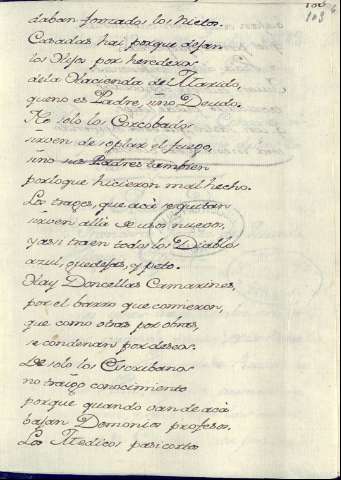 103
daban formados los nietos.
Casadas hai porque dejan
los Hijos por herederos
de la Hacienda del Marido,
que no es Padre, sino Deudo.
No solo los Corcobados
sirven de soplar el fuego,
sino sus Padres tambien
por lo que hicieron mal hecho.
Los trages, que acà se quitan
sirven allà de usos nuevos,
y asi traen todos los Diablos
azul, guedejas, y peto.
Hay Doncellas Camarines,
por el barro que comieron,
que como otras por obras,
se condenan por deseos.
De solo los Escribanos
no traigo conocimiento
porque quando van de acà
bajan Demonios profesos.
Los Medicos pasicortos